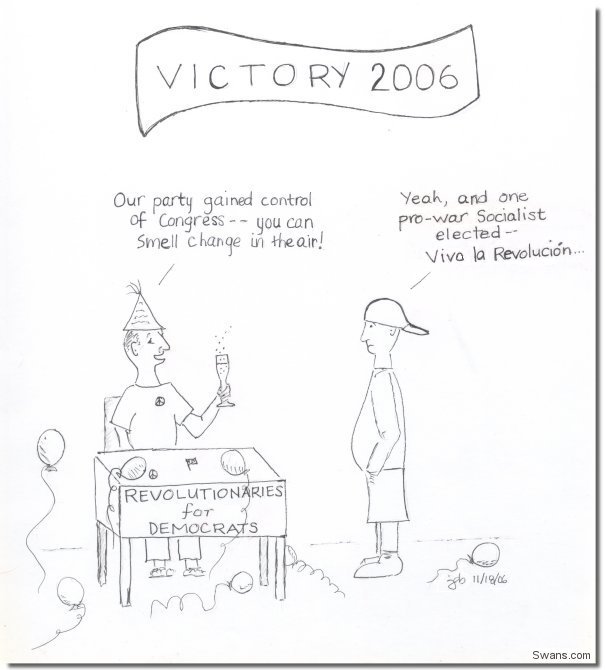 VICTORY 2006
Our party gained control
of Congress -- you can
smell change in the air!
Yeah, and one
pro-war Socialist
elected --
Viva la Revolución...
REVOLUTIONARIES
for
DEMOCRATS
jeb 11/18/06
Swans.com